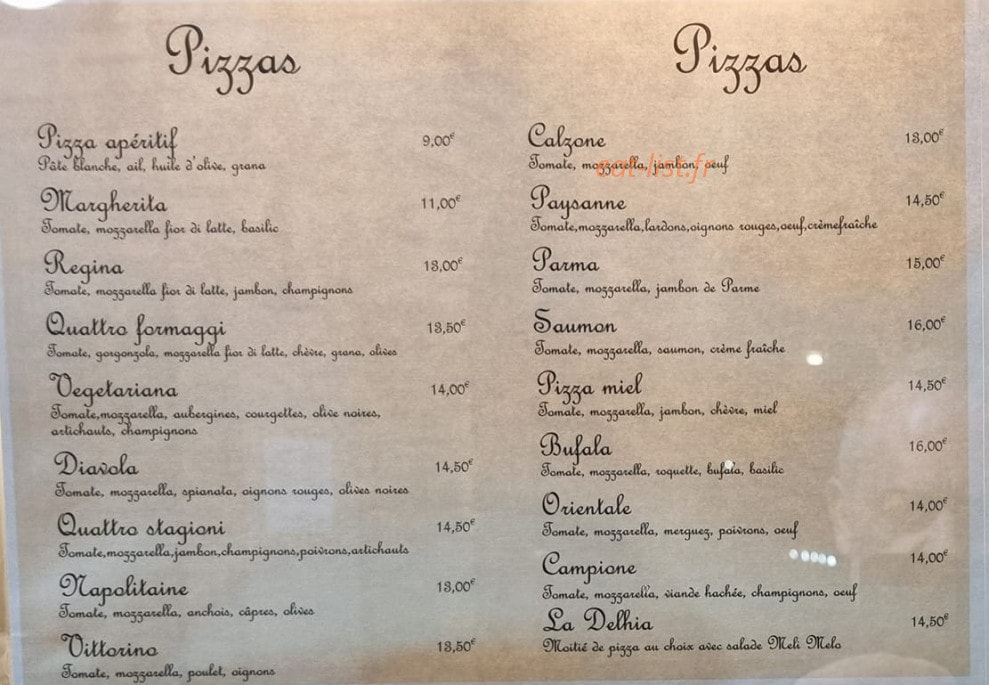 Pizzas
Pizza apéritif 9,00€
Pâte blanche, ail, huile d'olive, grana
Margherita 11,00€
Tomate, mozzarella fior di latte, basilic
Regina 13,00€
Tomate, mozzarella fior di latte, jambon, champignons
Quattro formaggi 13,50€
Tomate, gorgonzola, mozzarella fior di latte, chèvre, grana, olives
Vegetariana 14,00€
Tomate,mozzarella, aubergines, courgettes, olive noires,
artichauts, champignons
Diavola 14,50€
Tomate, mozzarella, spianata, oignons rouges, olives noires
Quattro stagioni 14,50€
Tomate,mozzarella,jambon,champignons,poivrons,artichauts
Napolitaine 13,00€
Tomate, mozzarella, anchois, câpres, olives
Vittorino 13,50€
Tomate, mozzarella, poulet, oignons
Pizzas
Calzone 13,00€
Tomate, mozzarella, jambon, oeuf
eat-list.fr
Paysanne 14,50€
Tomate,mozzarella,lardons,oignons rouges,oeuf,crèmefraîche
Parma 15,00€
Tomate, mozzarella, jambon de Parme
Saumon 16,00€
Tomate, mozzarella, saumon, crème fraîche
Pizza miel 14,50€
Tomate, mozzarella, jambon, chèvre, miel
Bufala 16,00€
Tomate, mozzarella, roquette, bufala, basilic
Orientale 14,00€
Tomate, mozzarella, merguez, poivrons, oeuf
Campione 14,00€
Tomate, mozzarella, viande hachée, champignons, oeuf
La Delhia 14,50€
Moitié de pizza au choix avec salade Meli Melo